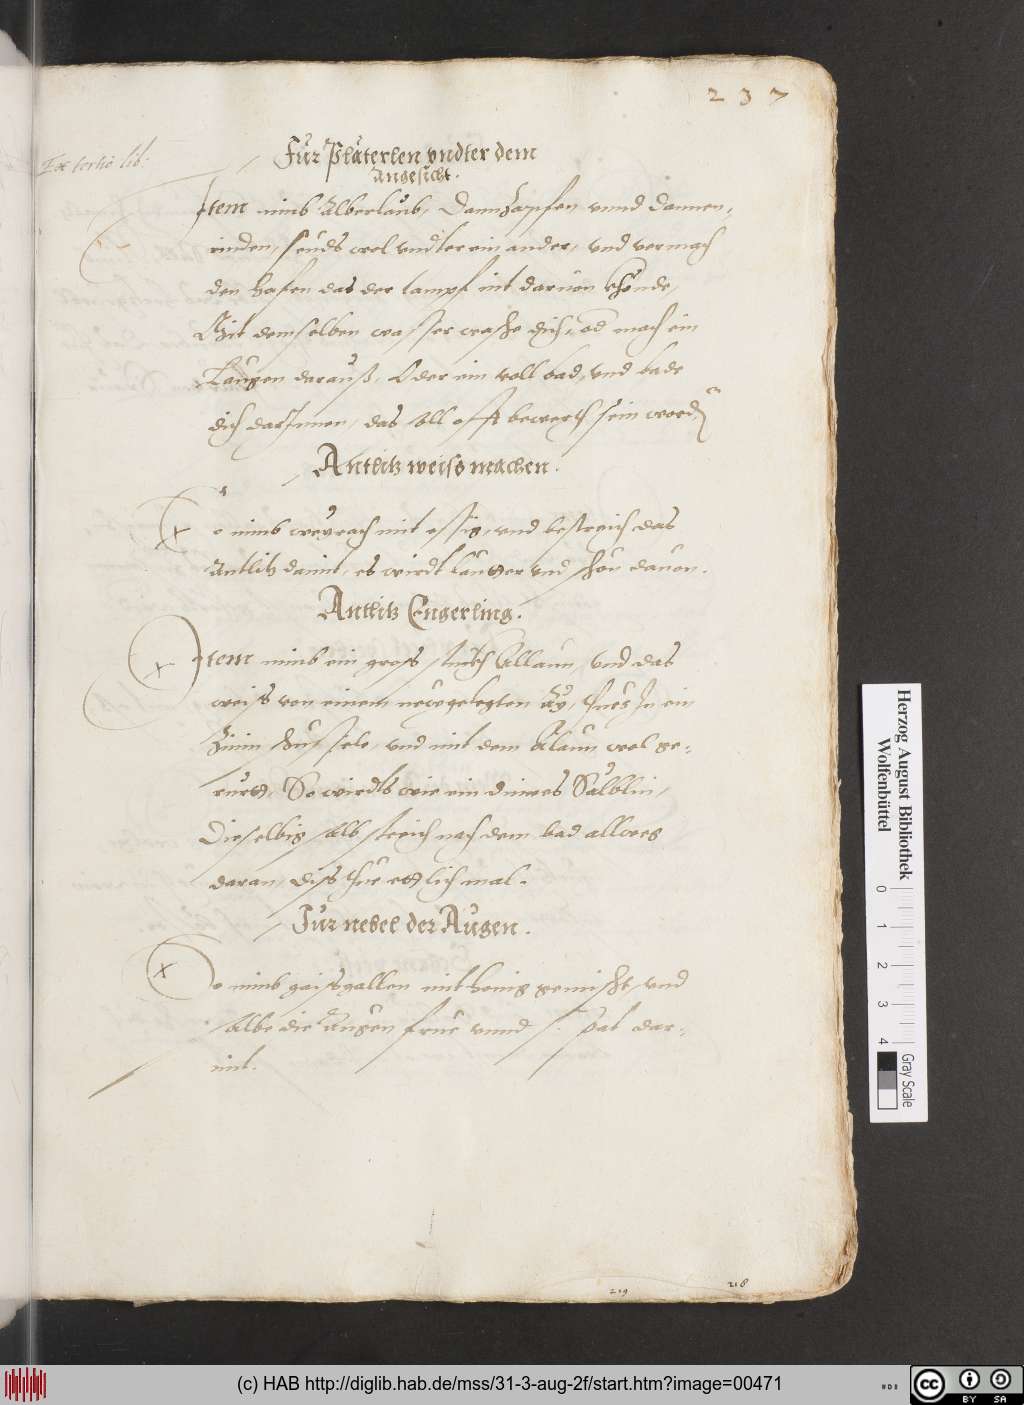 237
Ex tertio lib:
Für Pläterlen vndter dem
Angesicht.
Item nimb Alberlaub, Dannzapfen vnnd dannen-
rinden, seuds wol vndter ein ander, vnd vermach
den hafen das der tampf nit daruon khönde,
Mit demselben wasser wasche dich, od mach ein
Laugen darauß, Oder ein voll bad, vnd bade
dich darInnen, das All offt bewerth sein word
Antlitz weiss machen.
So nimb weyrach mit essig, vnd bestreich das
Antlitz damit, es wirdt lautter vnd schön dauon.
Antlitz Engerling.
Item nimb ein gross stuckh Allaun, vnd das
weiss von einem newgelegten Ay, thues In ein
Zinin schüssele, vnd mit dem Alaun wol ge-
rürtt, So wirdts wie ein dinnes Sälblin,
Dieselbig salb streich nach dem bad allweg
daran, diss thue ettlich mal.
Für nebel der Augen.
So nimb gaissgallen mit honig gemischt, vnd
salbe die Augen frue vnnd spat dar-
mit.
219
218
Herzog August Bibliothek
Wolfenbüttel
0 1 2 3 4
Gray Scale
(c) HAB http://diglib.hab.de/mss/31-3-aug-2f/start.htm?image=00471
cc BY SA